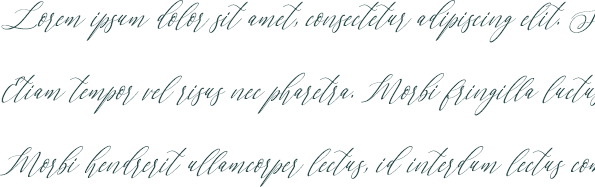 Lorem ipsum dolor sit amet, consectetur adipiscing elit.
Etiam tempor vel risus nec pharetra. Morbi fringilla luctus
Morbi hendrerit ullamcorper lectus, id interdum lectus con